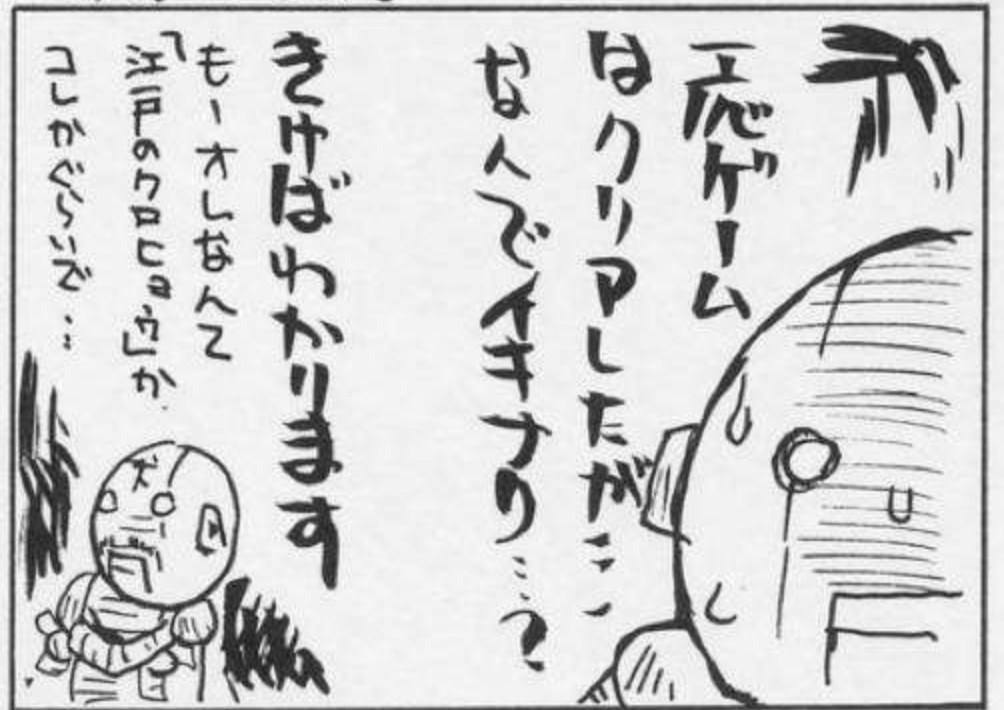 一応ゲーム
はクリアしたが…
なんでイキナリ…?
きけばわかります
もーオレなんて
「江戸のクロヒョウ」か
コレかぐらいで…